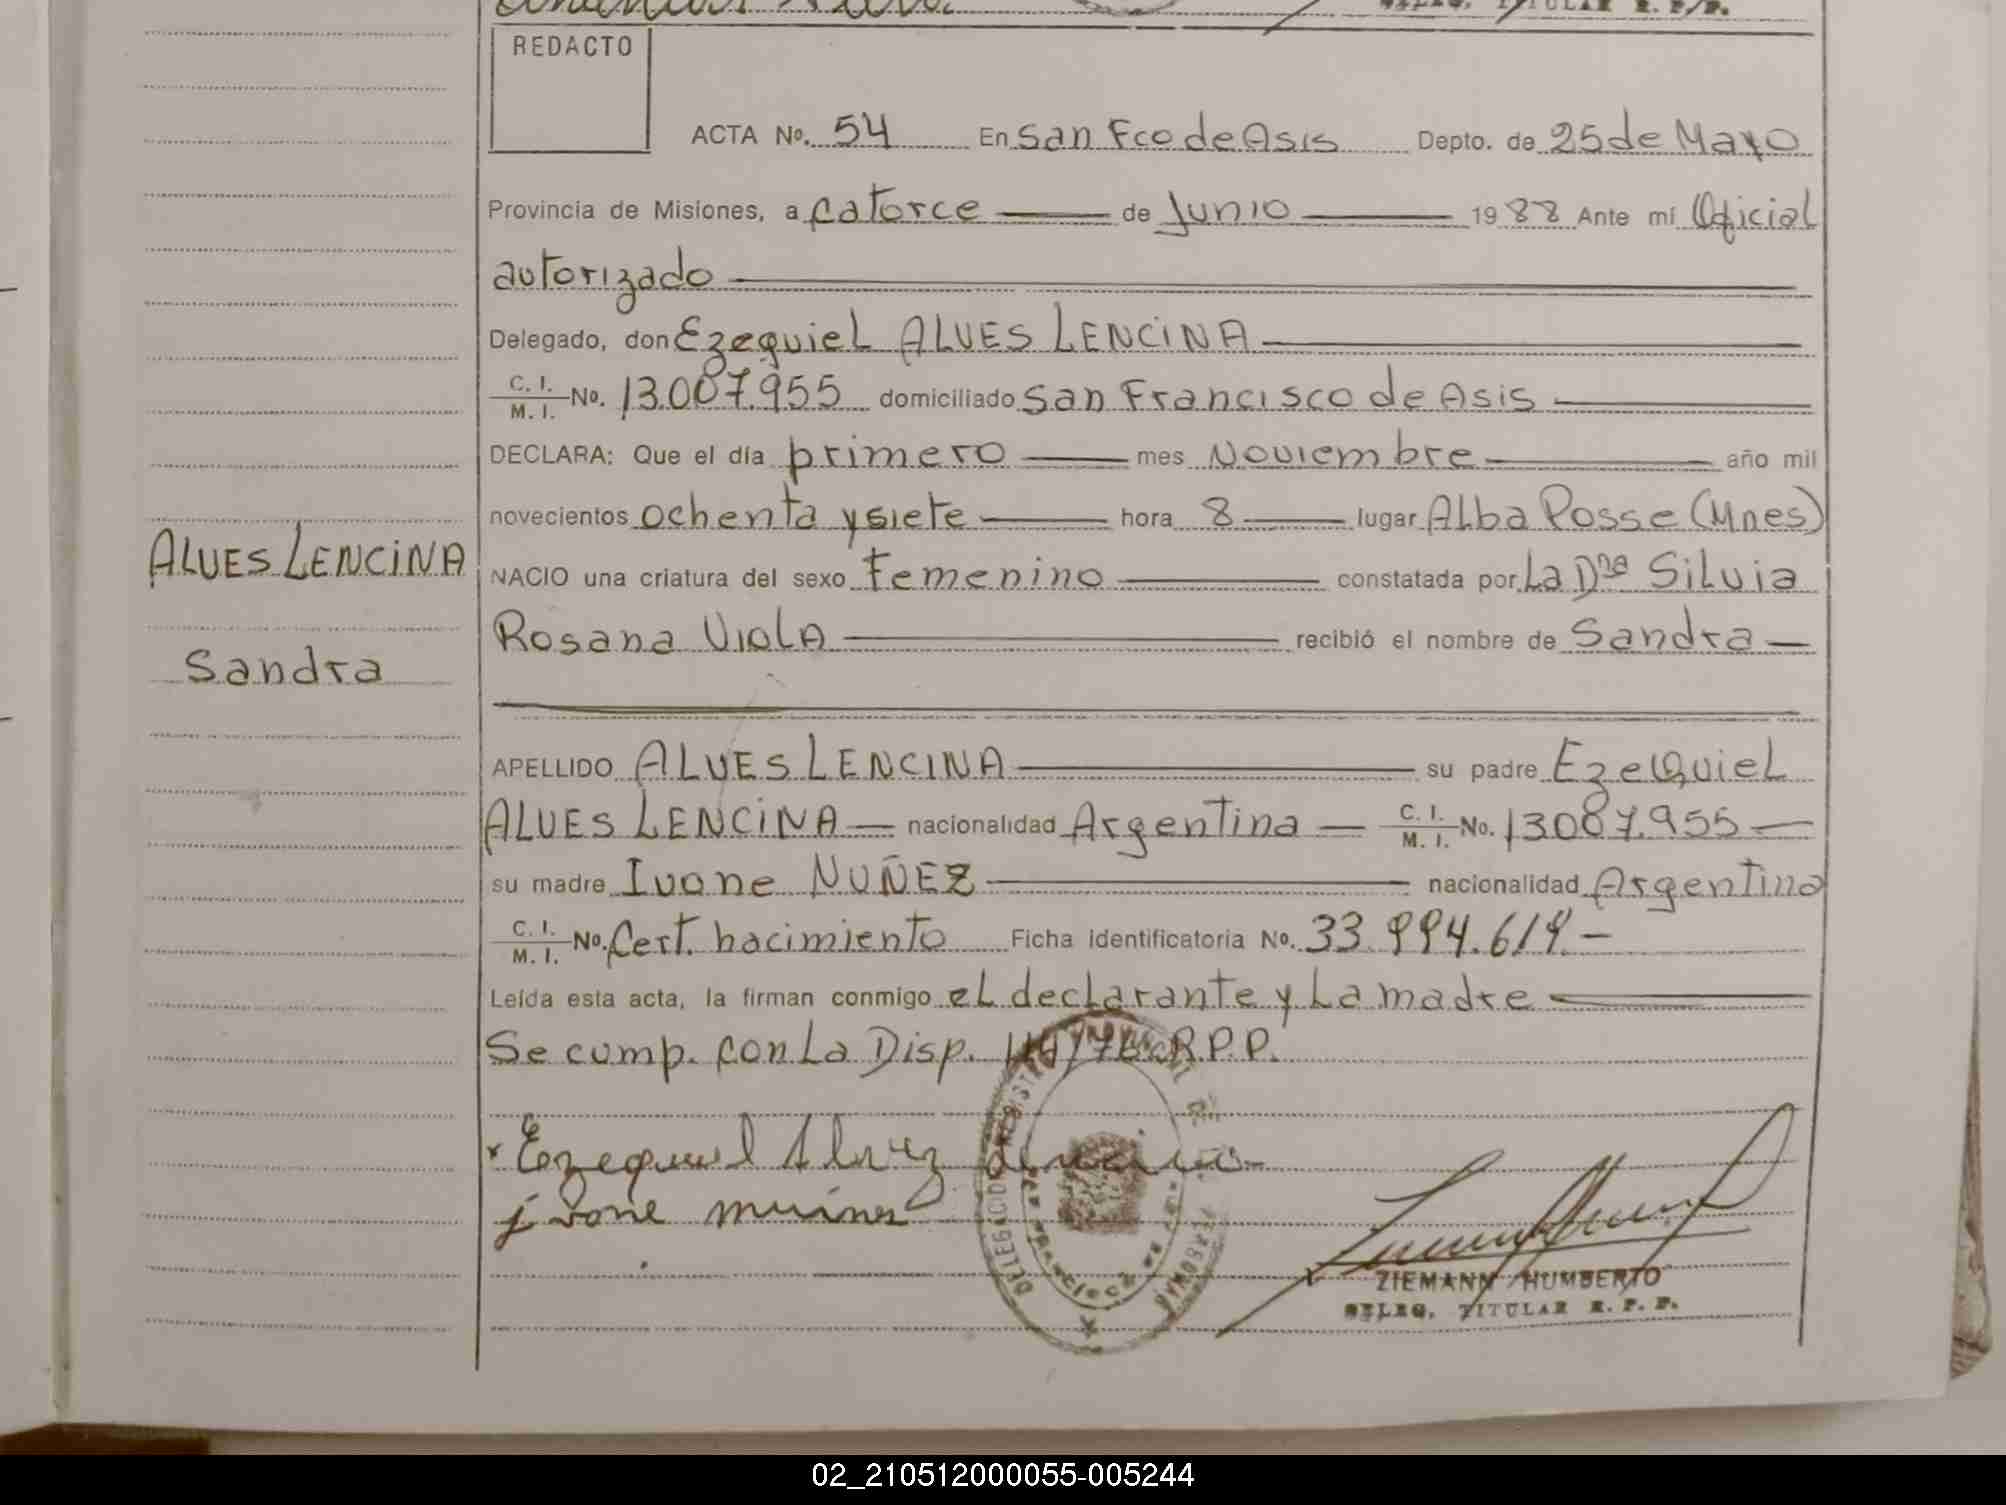 REDACTO
ACTA Nº. 54 En San Fco de Asis Depto. de 25 de Mayo
Provincia de Misiones, a catorce de Junio 1988 Ante mí Oficial
autorizado
Delegado, don Ezequiel ALVES LENCINA
C. I. / M. I. No. 13.087.955 domiciliado San Francisco de Asis
DECLARA: Que el día primero mes Noviembre año mil
novecientos ochenta y siete hora 8 lugar Alba Posse (Mnes)
ALVES LENCINA
NACIO una criatura del sexo Femenino constatada por La Dra Silvia
Rosana Viola recibió el nombre de Sandra
Sandra
APELLIDO ALVES LENCINA su padre Ezequiel
ALVES LENCINA nacionalidad Argentina C. I. / M. I. No. 13087.955
su madre Ivone NUÑEZ nacionalidad Argentina
C. I. / M. I. No. Cert. nacimiento Ficha identificatoria No. 33.994.619.-
Leída esta acta, la firman conmigo el declarante y La madre
Se cump. con La Disp. R.P.P.
Ezequiel
ZIEMANN HUMBERTO
DELEG. TITULAR R. P. P.
02_210512000055-005244